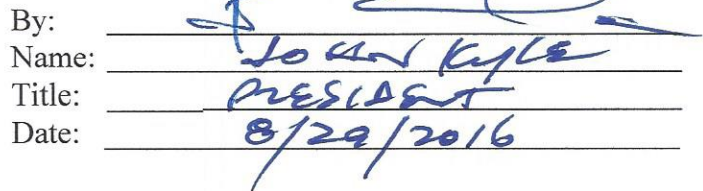 By:
Name: JOHN KYLE
Title: PRESIDENT
Date: 8/29/2016